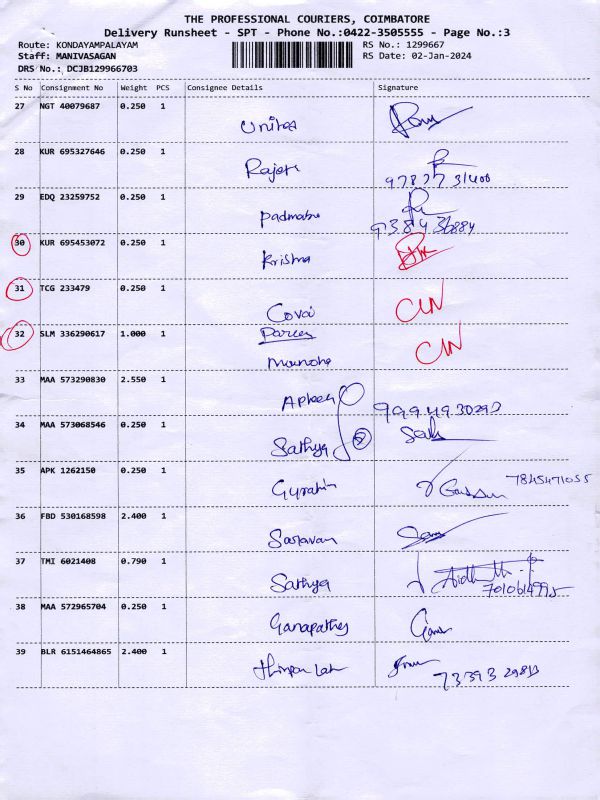 THE PROFESSIONAL COURIERS, COIMBATORE
Delivery Runsheet - SPT - Phone No.:0422-3505555 - Page No.:3
Route: KONDAYAMPALAYAM RS No.: 1299667
Staff: MANIVASAGAN RS Date: 02-Jan-2024
DRS No.: DCJB129966703
S No Consignment No Weight PCS Consignee Details Signature
27 NGT 40079687 0.250 1
United
28 KUR 695327646 0.250 1
Rajesh
29 EDQ 23259752 0.250 1
Padmabu
30 KUR 695453072 0.250 1
Krishna
31 TCG 233479 0.250 1
Covai CLN
32 SLM 336290617 1.000 1 Parcel
Manoha CLN
33 MAA 573290830 2.550 1
34 MAA 573068546 0.250 1
Sathya
35 APK 1262150 0.250 1
7845471055
36 FBD 530168598 2.400 1
Saravan
37 TMI 6021408 0.790 1
Sathya 7010614995
38 MAA 572965704 0.250 1
Ganapathy
39 BLR 6151464865 2.400 1